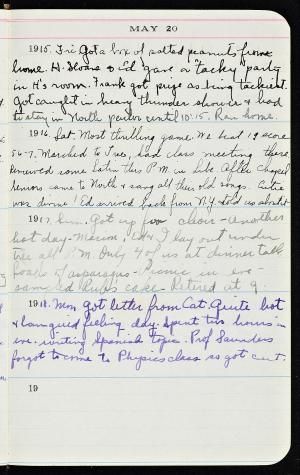 MAY 20
1915. Fri. Got a box of salted peanuts from
home. H. Sloane & Ed gave a "tacky" party
in H's room. Frank got prize as being tackiest.
Got caught in heavy thunder shower & had
to stay in North parlor until 10:15. Ran home.
1916 Sat. Most thrilling game. We beat 19 score
56-7. Marched to had class meeting there
Reviewed some Latin this P.M. in Lib. After chapel
Seniors came to North & sang all their old songs.
was divine! Ed arrived back from N.Y. told us about it
1917. Sun. Got up for choir - another
hot day - Marion, Ed & I lay out under
tree all P.M. Only 4 of us at dinner table
of asparagus - Picnic in eve -
cake Retired at 9.
1918. Mon Got letter from Cat. Quite hot
& languid feeling day. Spent two hours in
eve. writing Spanish topic. Prof Saunders
forgot to come to Physics class so got cut.
19